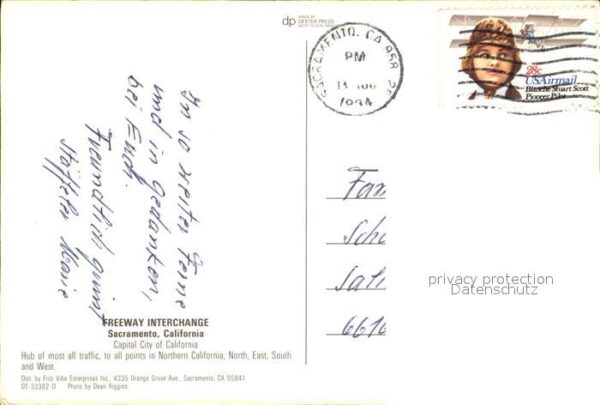 dp
MADE BY
DEXTER PRESS
SACRAMENTO, CA 958
PM
1984
28c
USAirmail
Blanche Stuart Scott
Pioneer Pilot
In so weiter Ferne
und in Gedanken,
bei Euch.
Freundlich grüsst
Fam
Sch
6610
privacy protection
Datenschutz
FREEWAY INTERCHANGE
Sacramento, California
Capital City of California
Hub of most all traffic, to all points in Northern California, North, East, South
and West.
Dist. by Fritz Vibe Enterprises Inc. 4335 Orange Grove Ave., Sacramento, CA 95841
DT-33302-D Photo by Dean Riggins